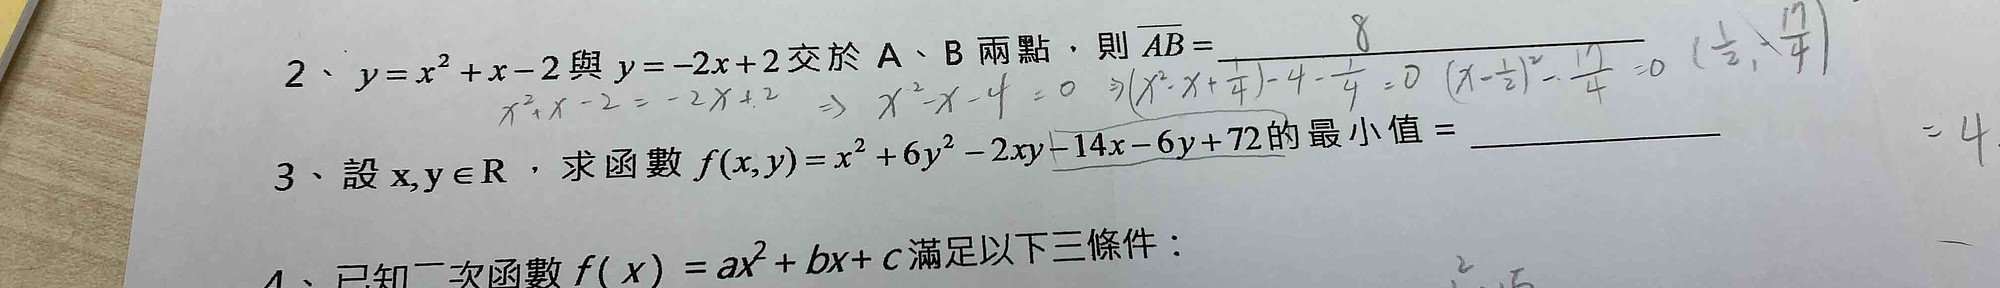 2、y=x²+x−2與y=−2x+2交於 A、B 兩點，則 AB= 8 (1/2, -17/4)
x²+x-2=-2x+2 ⇒ x²-x-4=0 ⇒(x²-x+1/4)-4-1/4=0 (x-1/2)²-17/4=0
3、設 x,y∈R，求函數 f(x,y)=x²+6y²−2xy−14x−6y+72的最小值= =4
4、已知二次函數 f(x)=ax²+bx+c滿足以下三條件：